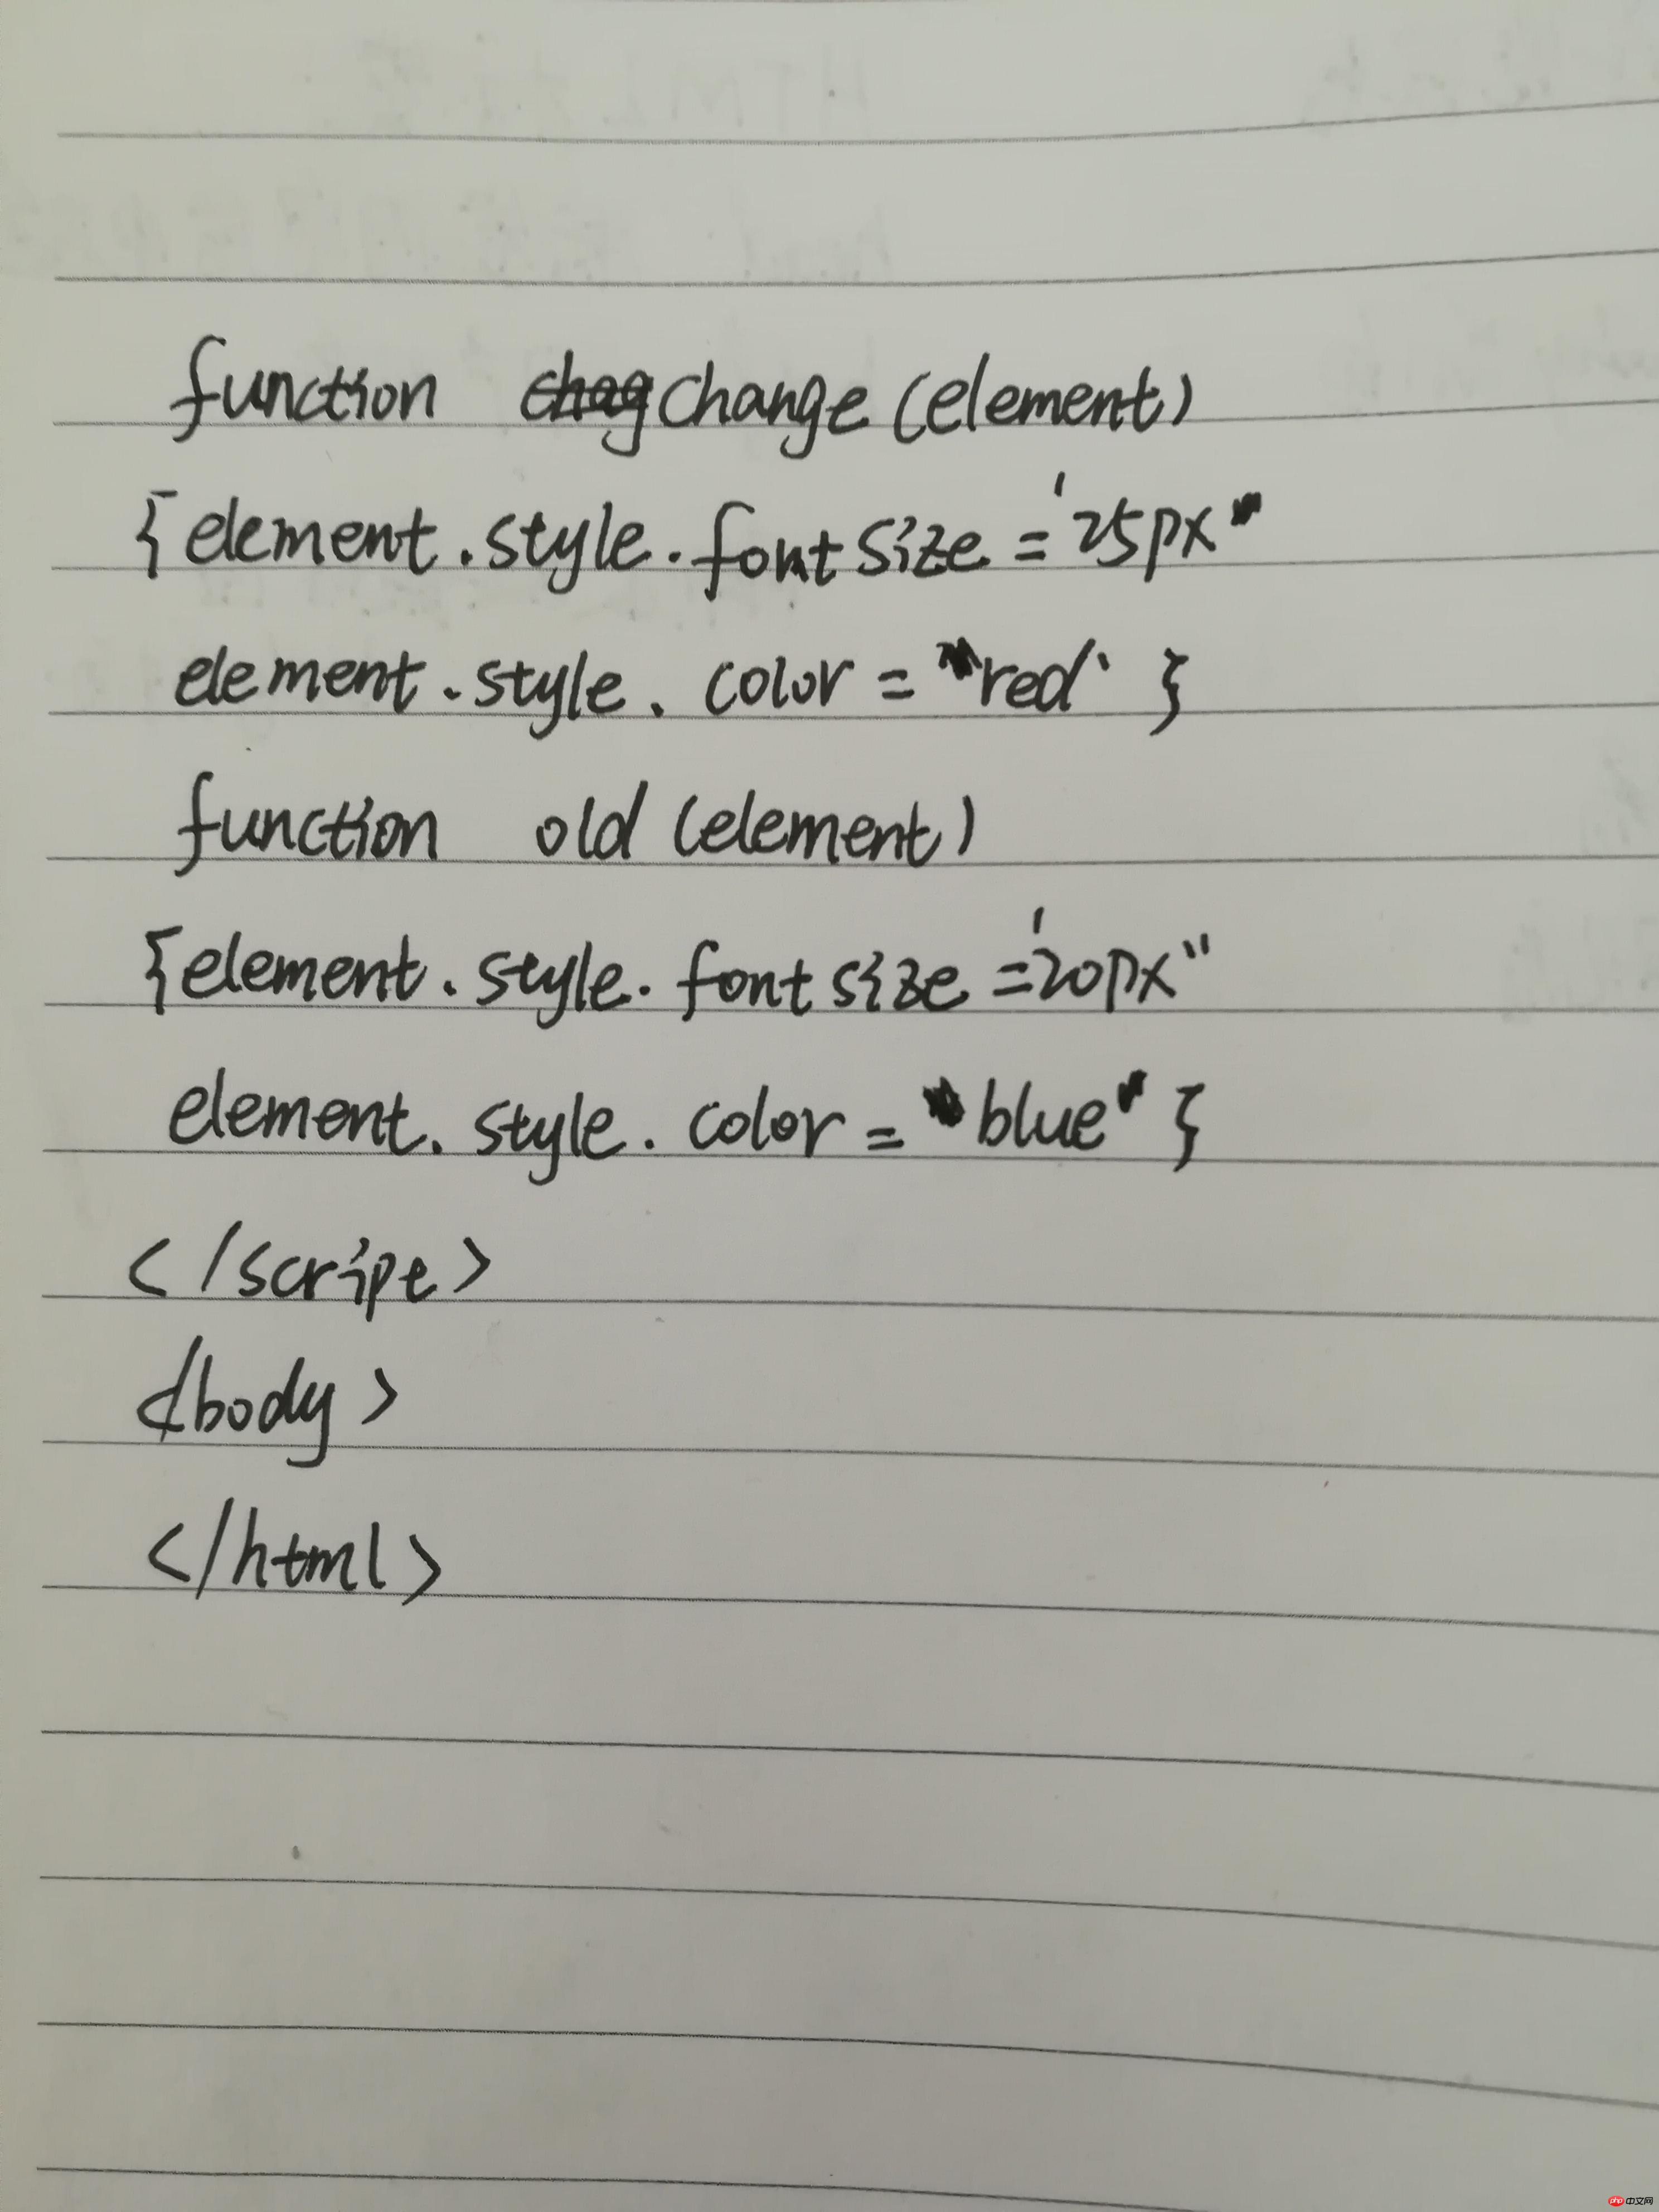 function change(element)
{element.style.fontsize='25px"
element.style.color="red' }
function old(element)
{element.style.fontsize='20px"
element.style.color="blue" }
</script>
</body>
</html>
php 中文网